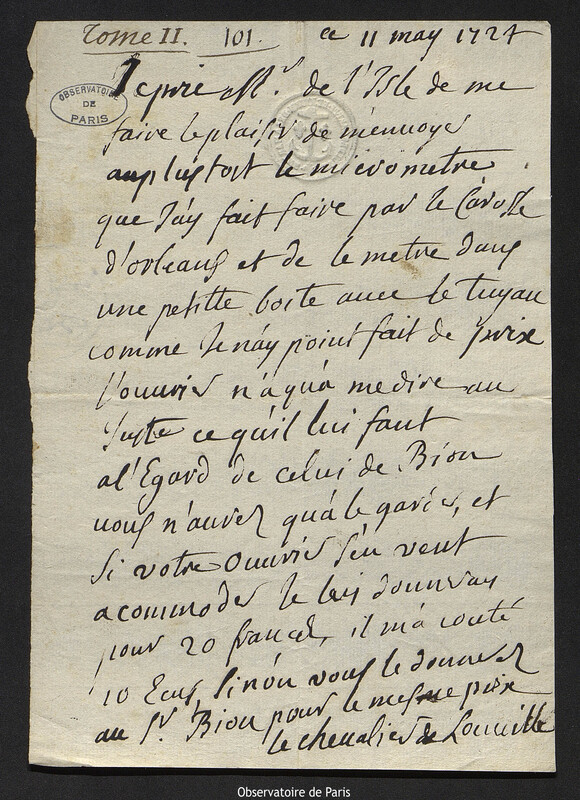 Tome II. 101. ce 11 may 1724
Je prie Mr. de l'Isle de me
OBSERVATOIRE
DE
PARIS
faire le plaisir de m'enuoyer
au plustost le micrometre
que J'ay fait faire par le Carosse
d'orleans et de le metre dans
une petitte boite auec le tuyau
comme Je n'ay point fait de prix
l'ouurier n'a qu'a me dire au
Juste ce qu'il lui faut
a l'Egard de celui de Bion
uous n'aurez qu'a le garder, et
si votre ouurier s'en veut
acommoder Je lui donneray
pour 20 francs, il m'a couté
10 Ecus, sinon vous le donnerez
au Sr. Bion pour le mesme prix
le cheualier de Louuille
Observatoire de Paris